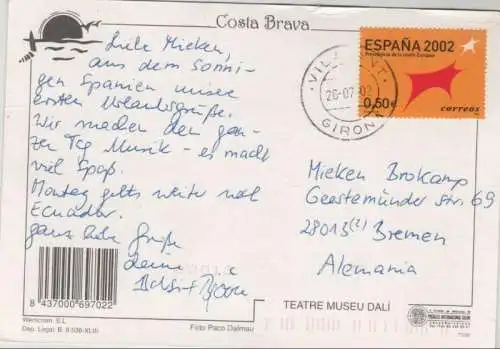 Costa Brava
Liebe Mieken,
aus dem Sonni-
gen Spanien unsere
ersten Urlaubsgrüße.
Wir machen den gan-
zen Tag Musik - es macht
viel Spaß.
Montag gehts weiter nach
Ecuador.
ganz liebe Grüße
deine
ESPAÑA 2002
Presidencia de la Unión Europea
0,50€
correos
26-07-02
GIRONA
Mieken Brokamp
Geestemünder Str. 69
28013 Bremen
Alemania
8 437000 697022
Dep. Legal: B.
Foto Paco Dalmau
TEATRE MUSEU DALÍ